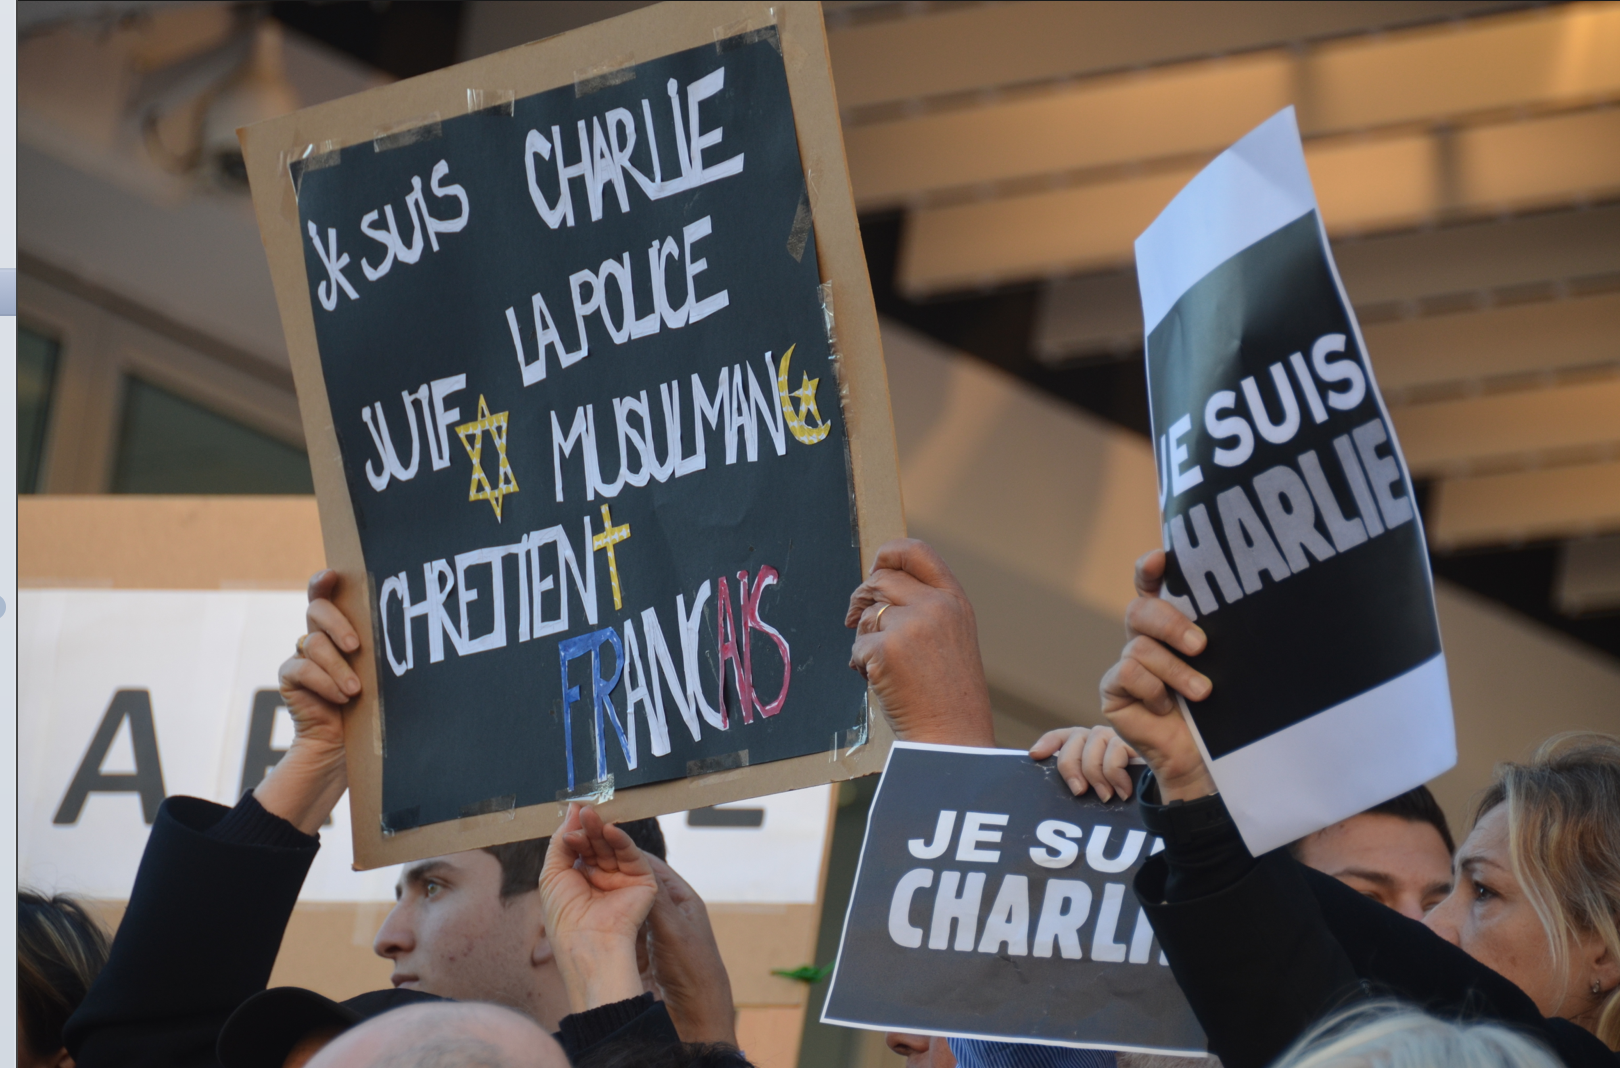 JE SUIS CHARLIE
LA POLICE
JUIF MUSULMAN
CHRETIEN
FRANCAIS
JE SUIS
CHARLIE
JE SUI
CHARLI
A